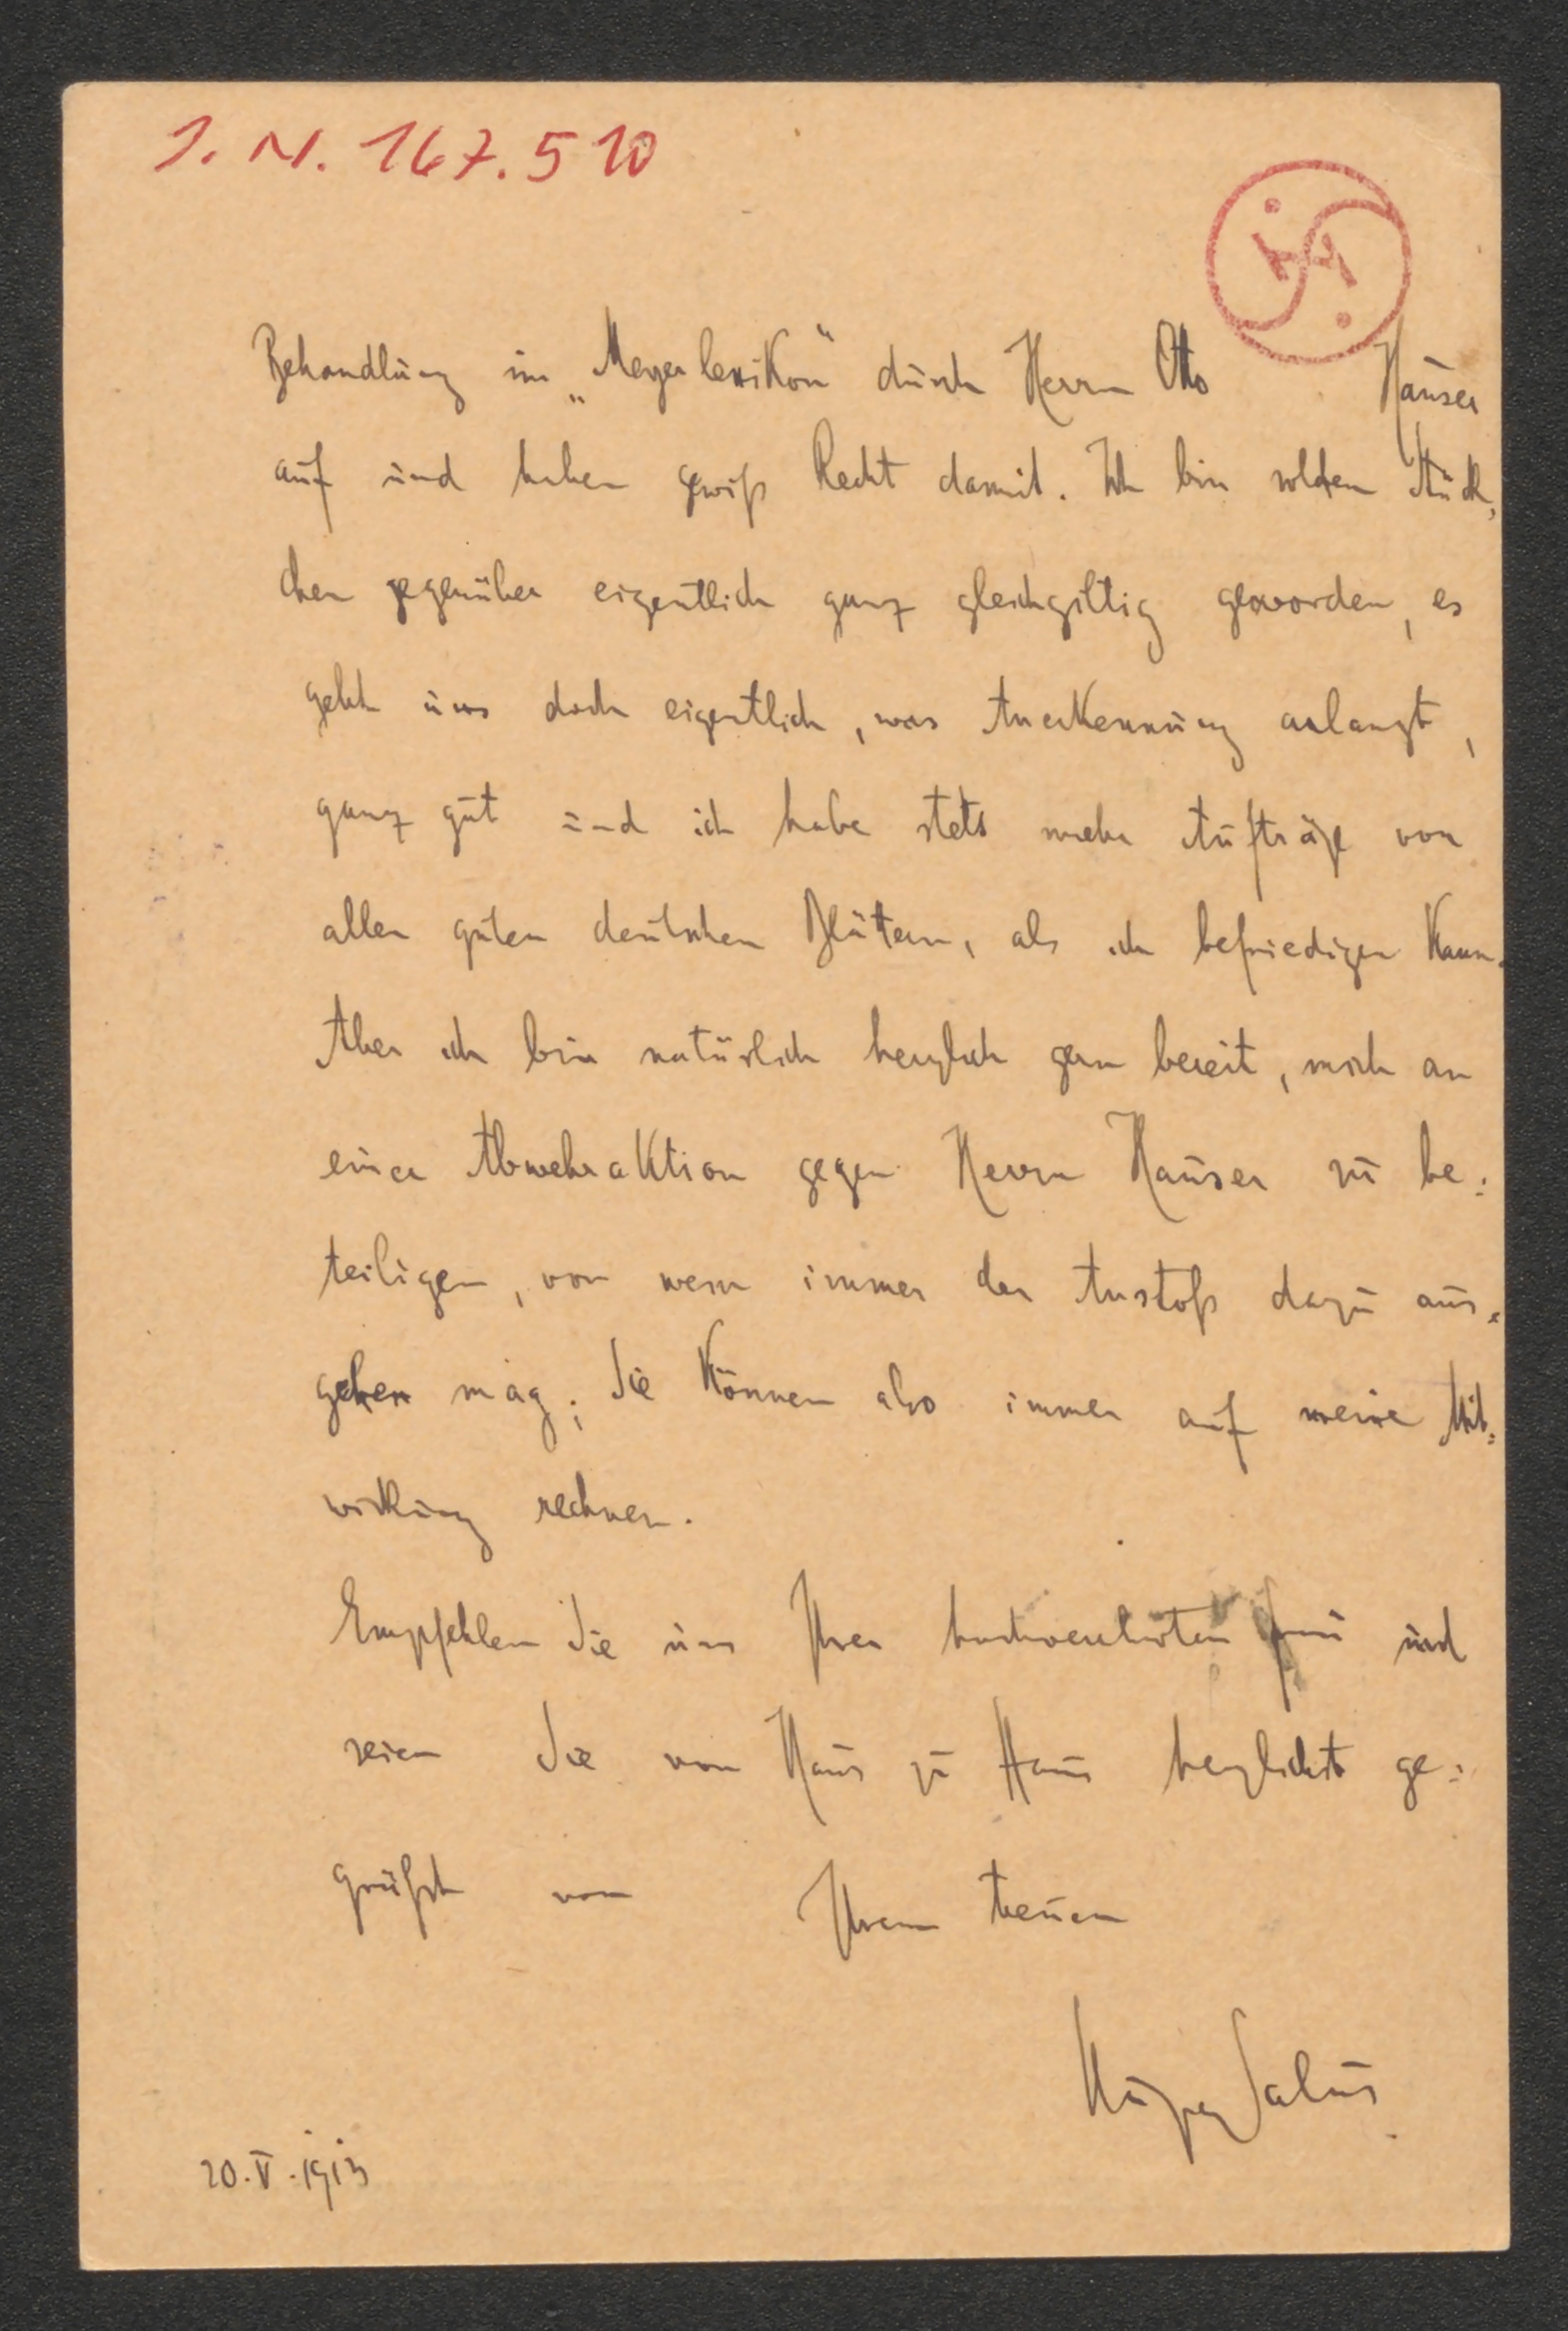 I. N. 167.510
Behandlung im „Meyerlexikon“ durch Herrn Otto Hauser
auf und haben gewiß Recht damit. Ich bin solchen Stück-
chen gegenüber eigentlich ganz gleichgiltig geworden, es
geht uns doch eigentlich, was Anerkennung anlangt,
ganz gut und ich habe stets mehr Aufträge von
allen guten deutschen Blätern, als ich befriedigen kann.
Aber ich bin natürlich herzlich gern bereit, mich an
einer Abwehraktion gegen Herrn Hauser zu be:
teiligen, von wem immer der Anstoß dazu aus-
gehen mag; Sie können also immer auf meine Mit:
wirkung rechnen.
Empfehlen Sie uns Ihrer hochverehrten Frau und
seien Sie von Haus zu Haus herzlichst ge:
grüßt von Ihrem treuen
Hugo Salus.
20.V.1913